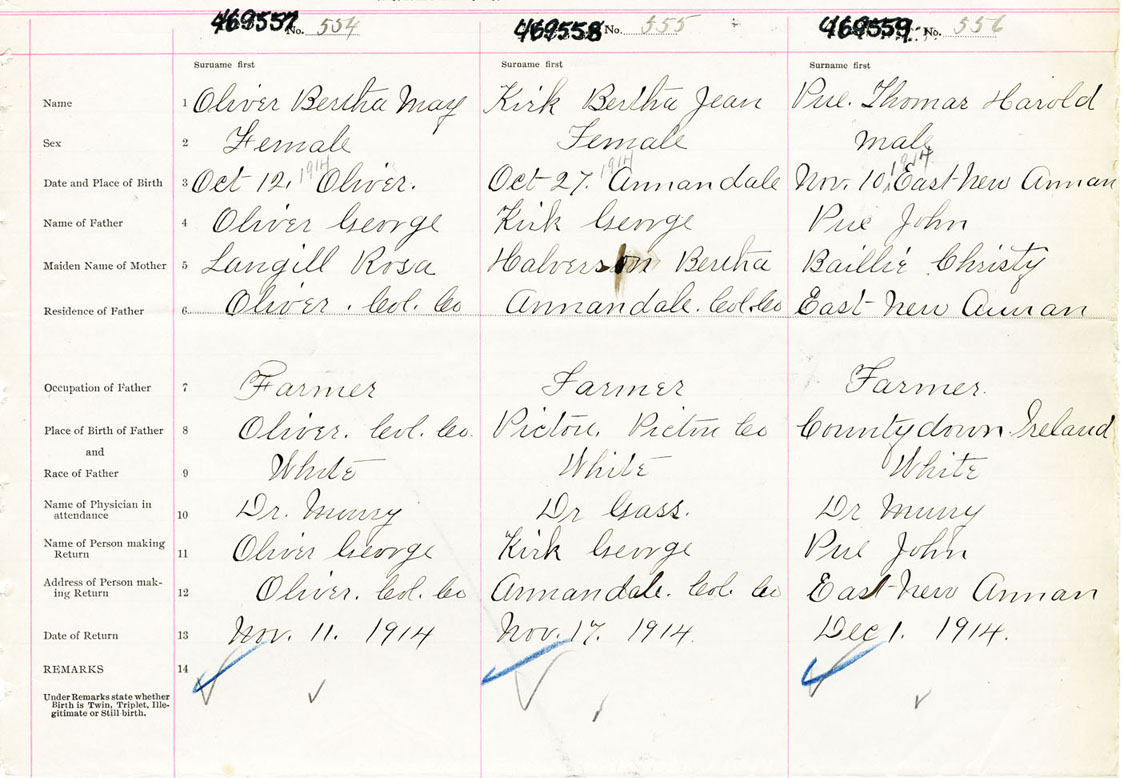 469557 No. 554 469558 No. 555 469559 No. 556
Surname first Surname first Surname first
Name 1 Oliver Bertha May Kirk Bertha Jean Pue. Thomas Harold
Sex 2 Female Female male
Date and Place of Birth 3 Oct 12, 1914 Oliver. Oct 27. 1914 Annandale Nov. 10, 1914 East New Annan
Name of Father 4 Oliver George Kirk George Pue John
Maiden Name of Mother 5 Langill Rosa Halverson Bertha Baillie Christy
Residence of Father 6 Oliver. Col. Co Annandale. Col. Co East New Annan
Occupation of Father 7 Farmer Farmer Farmer.
Place of Birth of Father 8 Oliver. Col. Co. Pictou, Pictou Co County down Ireland
and
Race of Father 9 White White White
Name of Physician in
attendance 10 Dr. Murry Dr Gass. Dr Murry
Name of Person making
Return 11 Oliver George Kirk George Pue John
Address of Person mak-
ing Return 12 Oliver. Col. Co Annandale. Col. Co East New Annan
Date of Return 13 Nov. 11. 1914 Nov. 17. 1914. Dec 1. 1914.
REMARKS 14
Under Remarks state whether
Birth is Twin, Triplet, Ille-
gitimate or Still birth.